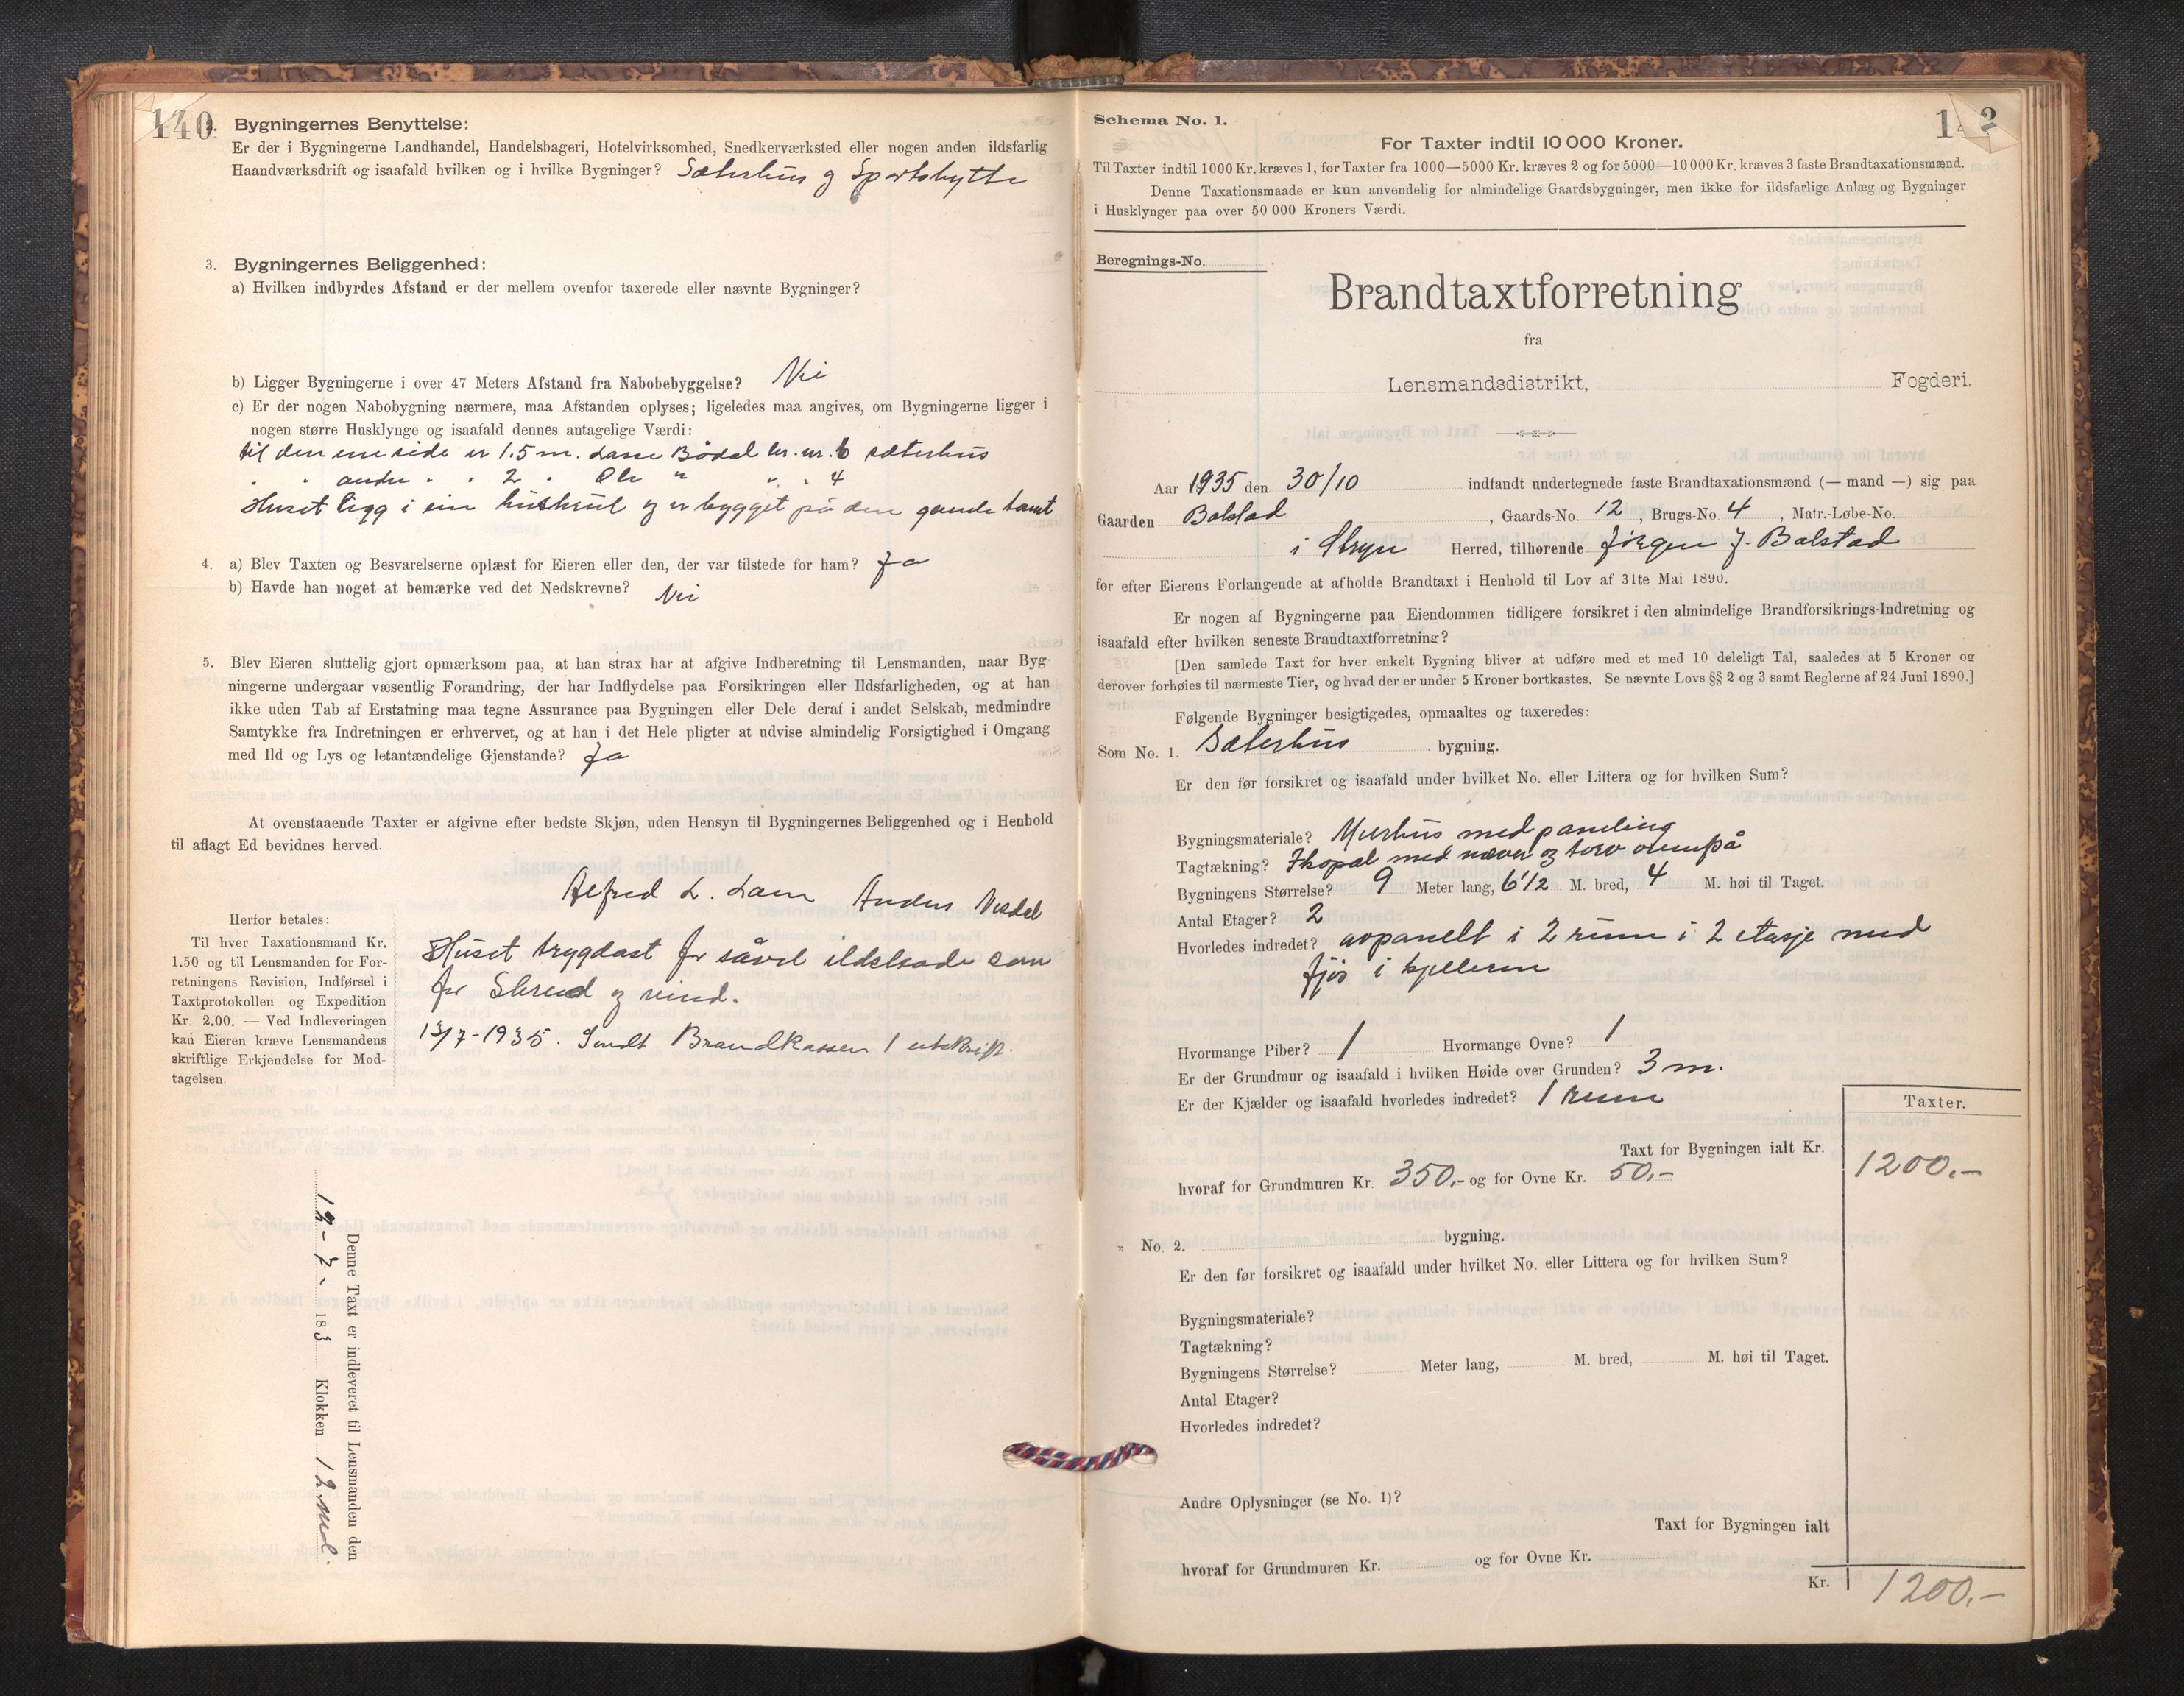 140
2. Bygningernes Benyttelse:
Er der i Bygningerne Landhandel, Handelsbageri, Hotelvirksomhed, Snedkerværksted eller nogen anden ildsfarlig
Haandværksdrift og isaafald hvilken og i hvilke Bygninger? Sæterhus og Sportshytte
3. Bygningernes Beliggenhed:
a) Hvilken indbyrdes Afstand er der mellem ovenfor taxerede eller nævnte Bygninger?
b) Ligger Bygningerne i over 47 Meters Afstand fra Nabobebyggelse? Nei
c) Er der nogen Nabobygning nærmere, maa Afstanden oplyses; ligeledes maa angives, om Bygningerne ligger i
nogen større Husklynge og isaafald dennes antagelige Værdi:
til den ene side er 1.5 m. Lasse Bødal br. nr. 6 sæterhus
" andre " " 2 " Ole " " " 4
Huset ligg i ein og er bygget på den gamle tomt
4. a) Blev Taxten og Besvarelserne oplæst for Eieren eller den, der var tilstede for ham? Ja
b) Havde han noget at bemærke ved det Nedskrevne? Nei
5. Blev Eieren sluttelig gjort opmærksom paa, at han strax har at afgive Indberetning til Lensmanden, naar Byg-
ningerne undergaar væsentlig Forandring, der har Indflydelse paa Forsikringen eller Ildsfarligheden, og at han
ikke uden Tab af Erstatning maa tegne Assurance paa Bygningen eller Dele deraf i andet Selskab, medmindre
Samtykke fra Indretningen er erhvervet, og at han i det Hele pligter at udvise almindelig Forsigtighed i Omgang
med Ild og Lys og letantændelige Gjenstande? Ja
At ovenstaaende Taxter er afgivne efter bedste Skjøn, uden Hensyn til Bygningernes Beliggenhed og i Henhold
til aflagt Ed bevidnes herved.
Alfred L. Loen Anders Nesdal
Herfor betales:
Til hver Taxationsmand Kr.
1.50 og til Lensmanden for For-
retningens Revision, Indførsel i
Taxtprotokollen og Expedition
Kr. 2.00. — Ved Indleveringen
kan Eieren kræve Lensmandens
skriftlige Erkjendelse for Mod-
tagelsen.
Huset trygdast for såvel ildskade som
for Skred og vind.
13/7-1935. Sendt Brandkassen 1 utskrift.
Denne Taxt er indleveret til Lensmanden den
12 - 7 - 183 Klokken 12 mid.
Schema No. 1.
For Taxter indtil 10 000 Kroner.
Til Taxter indtil 1000 Kr. kræves 1, for Taxter fra 1000—5000 Kr. kræves 2 og for 5000—10 000 Kr. kræves 3 faste Brandtaxationsmænd.
Denne Taxationsmaade er kun anvendelig for almindelige Gaardsbygninger, men ikke for ildsfarlige Anlæg og Bygninger
i Husklynger paa over 50 000 Kroners Værdi.
Beregnings-No.
Brandtaxtforretning
fra
Lensmandsdistrikt, Fogderi.
Aar 1935 den 30/10 indfandt undertegnede faste Brandtaxationsmænd (— mand —) sig paa
Gaarden Bolstad, Gaards-No. 12, Brugs-No. 4, Matr.-Løbe-No.
i Stryn Herred, tilhørende Jørgen J. Bolstad
for efter Eierens Forlangende at afholde Brandtaxt i Henhold til Lov af 31te Mai 1890.
Er nogen af Bygningerne paa Eiendommen tidligere forsikret i den almindelige Brandforsikrings-Indretning og
isaafald efter hvilken seneste Brandtaxtforretning?
[Den samlede Taxt for hver enkelt Bygning bliver at udføre med et med 10 deleligt Tal, saaledes at 5 Kroner og
derover forhøies til nærmeste Tier, og hvad der er under 5 Kroner bortkastes. Se nævnte Lovs §§ 2 og 3 samt Reglerne af 24 Juni 1890.]
Følgende Bygninger besigtigedes, opmaaltes og taxeredes:
Som No. 1. Sæterhus bygning.
Er den før forsikret og isaafald under hvilket No. eller Littera og for hvilken Sum?
Bygningsmateriale? Murhus med paneling
Tagtækning? Ihopal med never og torv ovenpå
Bygningens Størrelse? 9 Meter lang, 6 1/2 M. bred, 4 M. høi til Taget.
Antal Etager? 2
Hvorledes indredet? oppanelt i 2 rum i 2 etasje med
fjøs i kjelleren
Hvormange Piber? 1 Hvormange Ovne? 1
Er der Grundmur og isaafald i hvilken Høide over Grunden? 3 m.
Er der Kjælder og isaafald hvorledes indredet? 1 rum
Taxter.
Taxt for Bygningen ialt Kr. 1200.-
hvoraf for Grundmuren Kr. 350,- og for Ovne Kr. 50,-
" No. 2. bygning.
Er den før forsikret og isaafald under hvilket No. eller Littera og for hvilken Sum?
Bygningsmateriale?
Tagtækning?
Bygningens Størrelse? Meter lang, M. bred, M. høi til Taget.
Antal Etager?
Hvorledes indredet?
Andre Oplysninger (se No. 1)?
Taxt for Bygningen ialt
hvoraf for Grundmuren Kr. og for Ovne Kr.
Kr. 1200.-